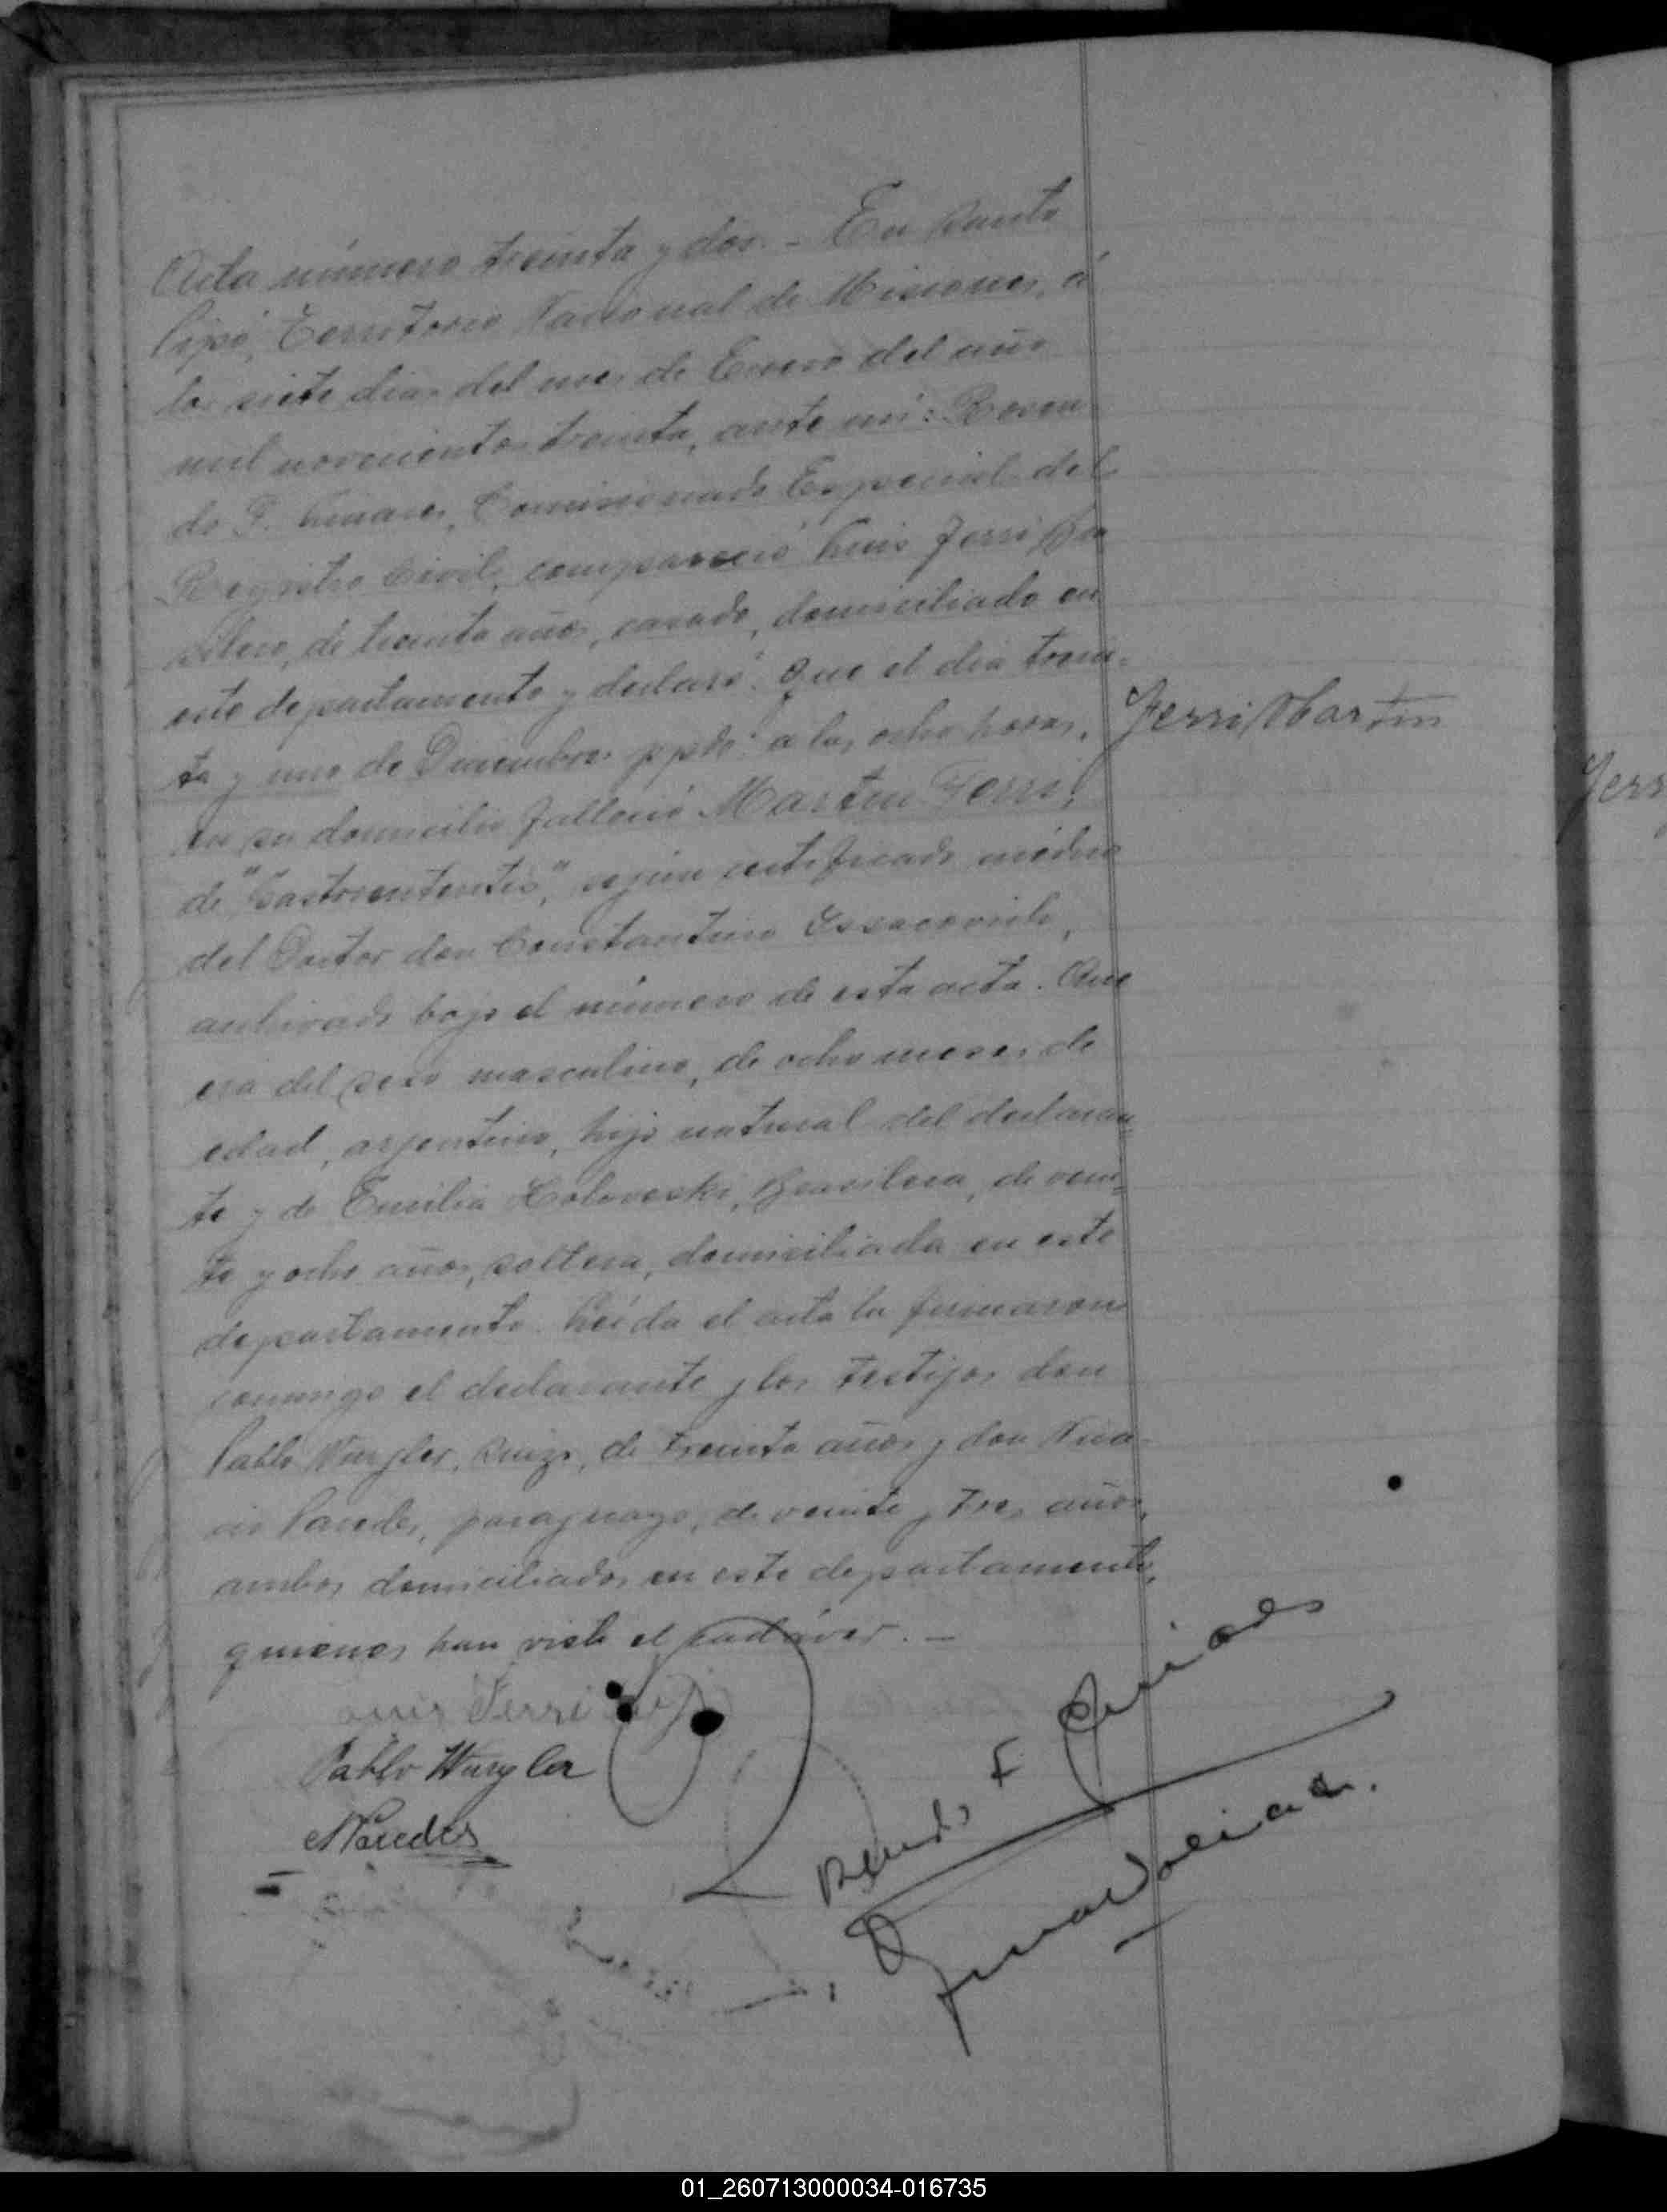 Acta número treinta y dos. - En Puerto
Cipó, Territorio Nacional de Misiones, á
los siete dias del mes de Enero del año
mil novecientos treinta, ante mi: Rosen-
do F. Linares, Comisionado Especial del
Registro Civil, compareció Luis Ferri, Bra
silero, de treinta años, casado, domiciliado en
este departamento y declaró: Que el dia trein-
ta y uno de Diciembre ppdo. a las ocho horas,
Ferri, Martin
en su domicilio falleció Martin Ferri,
de "Gastroenteritis", según certificado médico
del Doctor don Constantino
archivado bajo el número de esta acta. Que
era del sexo masculino, de ocho meses de
edad, arjentino, hijo natural del declaran-
te y de Emilia Brasilera, de vein-
te y ocho años, soltera, domiciliada en este
departamento. Leída el acta la firmaron
conmigo el declarante y los testigos don
Pablo Wurgler, suizo, de treinta años y don
Paredes, paraguayo, de veinte y tres años,
ambos domiciliados en este departamento,
quienes han visto el cadáver. -
Luis Ferri
Pablo Wurgler
NParedes
Rosendo F Linares
Ferr
01_260713000034-016735